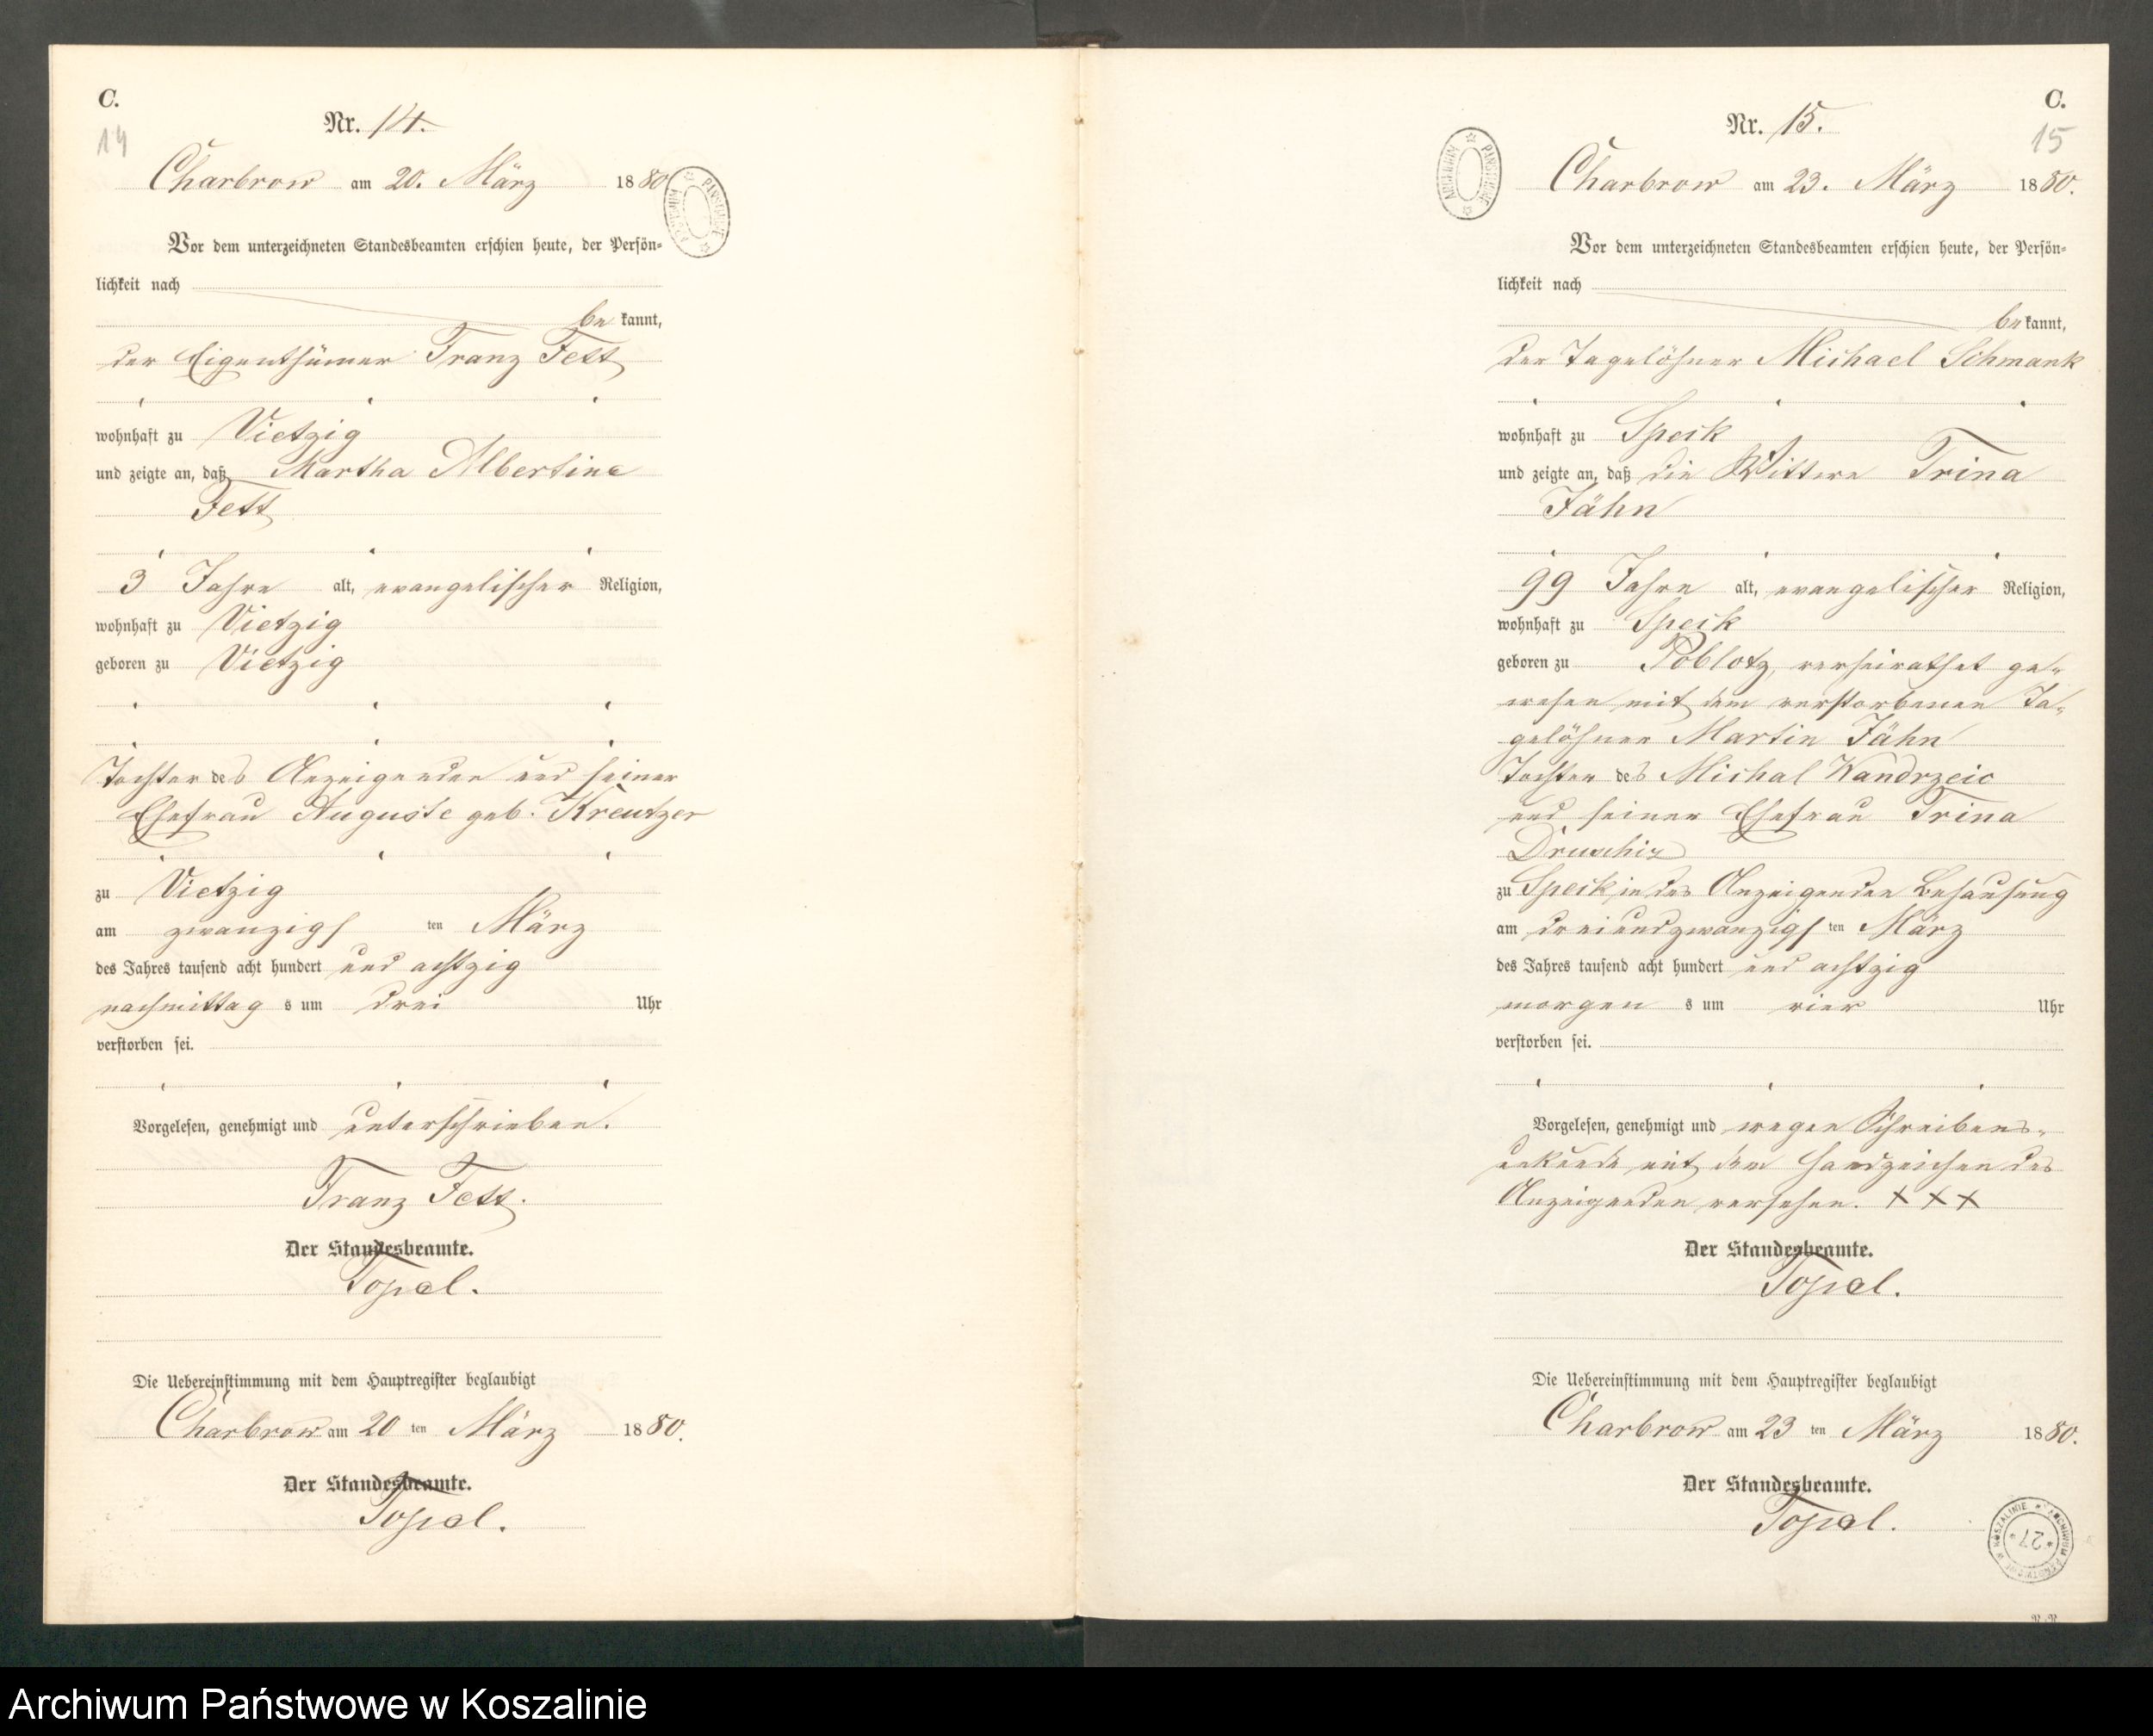 C.
14
Nr. 14.
Charbrow am 20. März 1880
Vor dem unterzeichneten Standesbeamten erschien heute, der Persön-
lichkeit nach
bekannt,
der Eigenthümer Franz Fett
wohnhaft zu Vietzig
und zeigte an, daß Martha Albertine
Fett
3 Jahre alt, evangelischer Religion,
wohnhaft zu Vietzig
geboren zu Vietzig
Tochter des Anzeigenden und seiner
Ehefrau Auguste geb. Kreutzer
zu Vietzig
am zwanzigsten März
des Jahres tausend acht hundert und achtzig
nachmittags um drei Uhr
verstorben sei.
Vorgelesen, genehmigt und unterschrieben.
Franz Fett.
Der Standesbeamte.
Topel.
Die Uebereinstimmung mit dem Hauptregister beglaubigt
Charbrow am 20ten März 1880.
Der Standesbeamte.
Topel.
C.
15
Nr. 15.
Charbrow am 23. März 1880.
Vor dem unterzeichneten Standesbeamten erschien heute, der Persön-
lichkeit nach
bekannt,
der Tagelöhner Michael Schmank
wohnhaft zu Speck
und zeigte an, daß die Wittwe Trina
Jähn
99 Jahre alt, evangelischer Religion,
wohnhaft zu Speck
geboren zu Poblotz, verheirathet ge-
wesen mit dem verstorbenen Ta-
gelöhner Martin Jähn
Tochter des Michal Wandrzeic
und seiner Ehefrau Trina
zu Speck in des Anzeigenden Behausung
am dreiundzwanzigsten März
des Jahres tausend acht hundert und achtzig
morgens um vier Uhr
verstorben sei.
Vorgelesen, genehmigt und wegen Schreibens-
unkunde mit dem Handzeichen des
Anzeigenden versehen. XXX
Der Standesbeamte.
Topel.
Die Uebereinstimmung mit dem Hauptregister beglaubigt
Charbrow am 23ten März 1880.
Der Standesbeamte.
Topel.
ARCHIWUM PAŃSTWOWE W KOSZALINIE
* 27 *
Archiwum Państwowe w Koszalinie